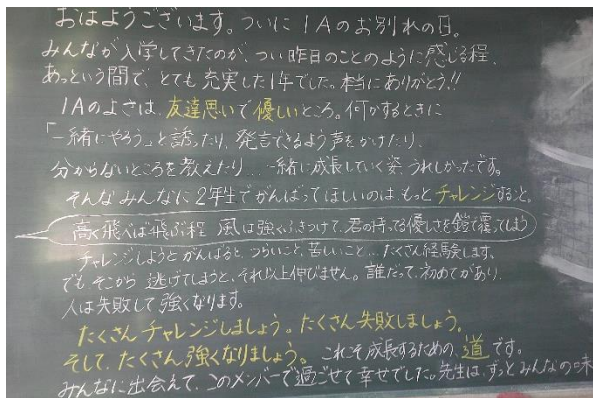 おはようございます。ついに1Aのお別れの日。
みんなが入学してきたのが、つい昨日のことのように感じる程、
あっという間で、とても充実した1年でした。本当にありがとう!!
1Aのよさは、友達思いで優しいところ。何かするときに
「一緒にやろう」と誘ったり、発言できるよう声をかけたり、
分からないところを教えたり…一緒に成長していく姿、うれしかったです。
そんなみんなに2年生でがんばってほしいのは、もっとチャレンジすること。
高く飛べば飛ぶ程 風は強くふきつけて、君の持ってる優しさを鎧で覆ってしまう
チャレンジしようとがんばると、つらいこと、苦しいこと…たくさん経験します。
でもそこから逃げてしまうと、それ以上伸びません。誰だって初めてがあり、
人は失敗して強くなります。
たくさんチャレンジしましょう。たくさん失敗しましょう。
そして、たくさん強くなりましょう。これこそ成長するための、道です。
みんなに出会えて、このメンバーで過ごせて幸せでした。先生は、ずっとみんなの味